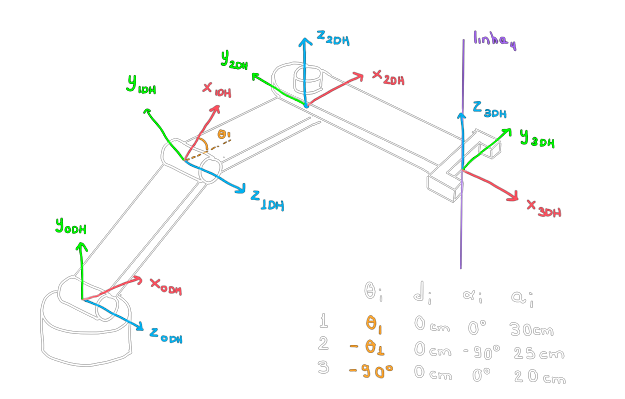 z2DH
linha4
y2DH
x2DH
y1DH
x1DH
θ1
z3DH
y3DH
z1DH
x3DH
y0DH
x0DH
z0DH
θi di αi ai
1 θ1 0cm 0° 30cm
2 -θ1 0cm -90° 25cm
3 -90° 0cm 0° 20cm